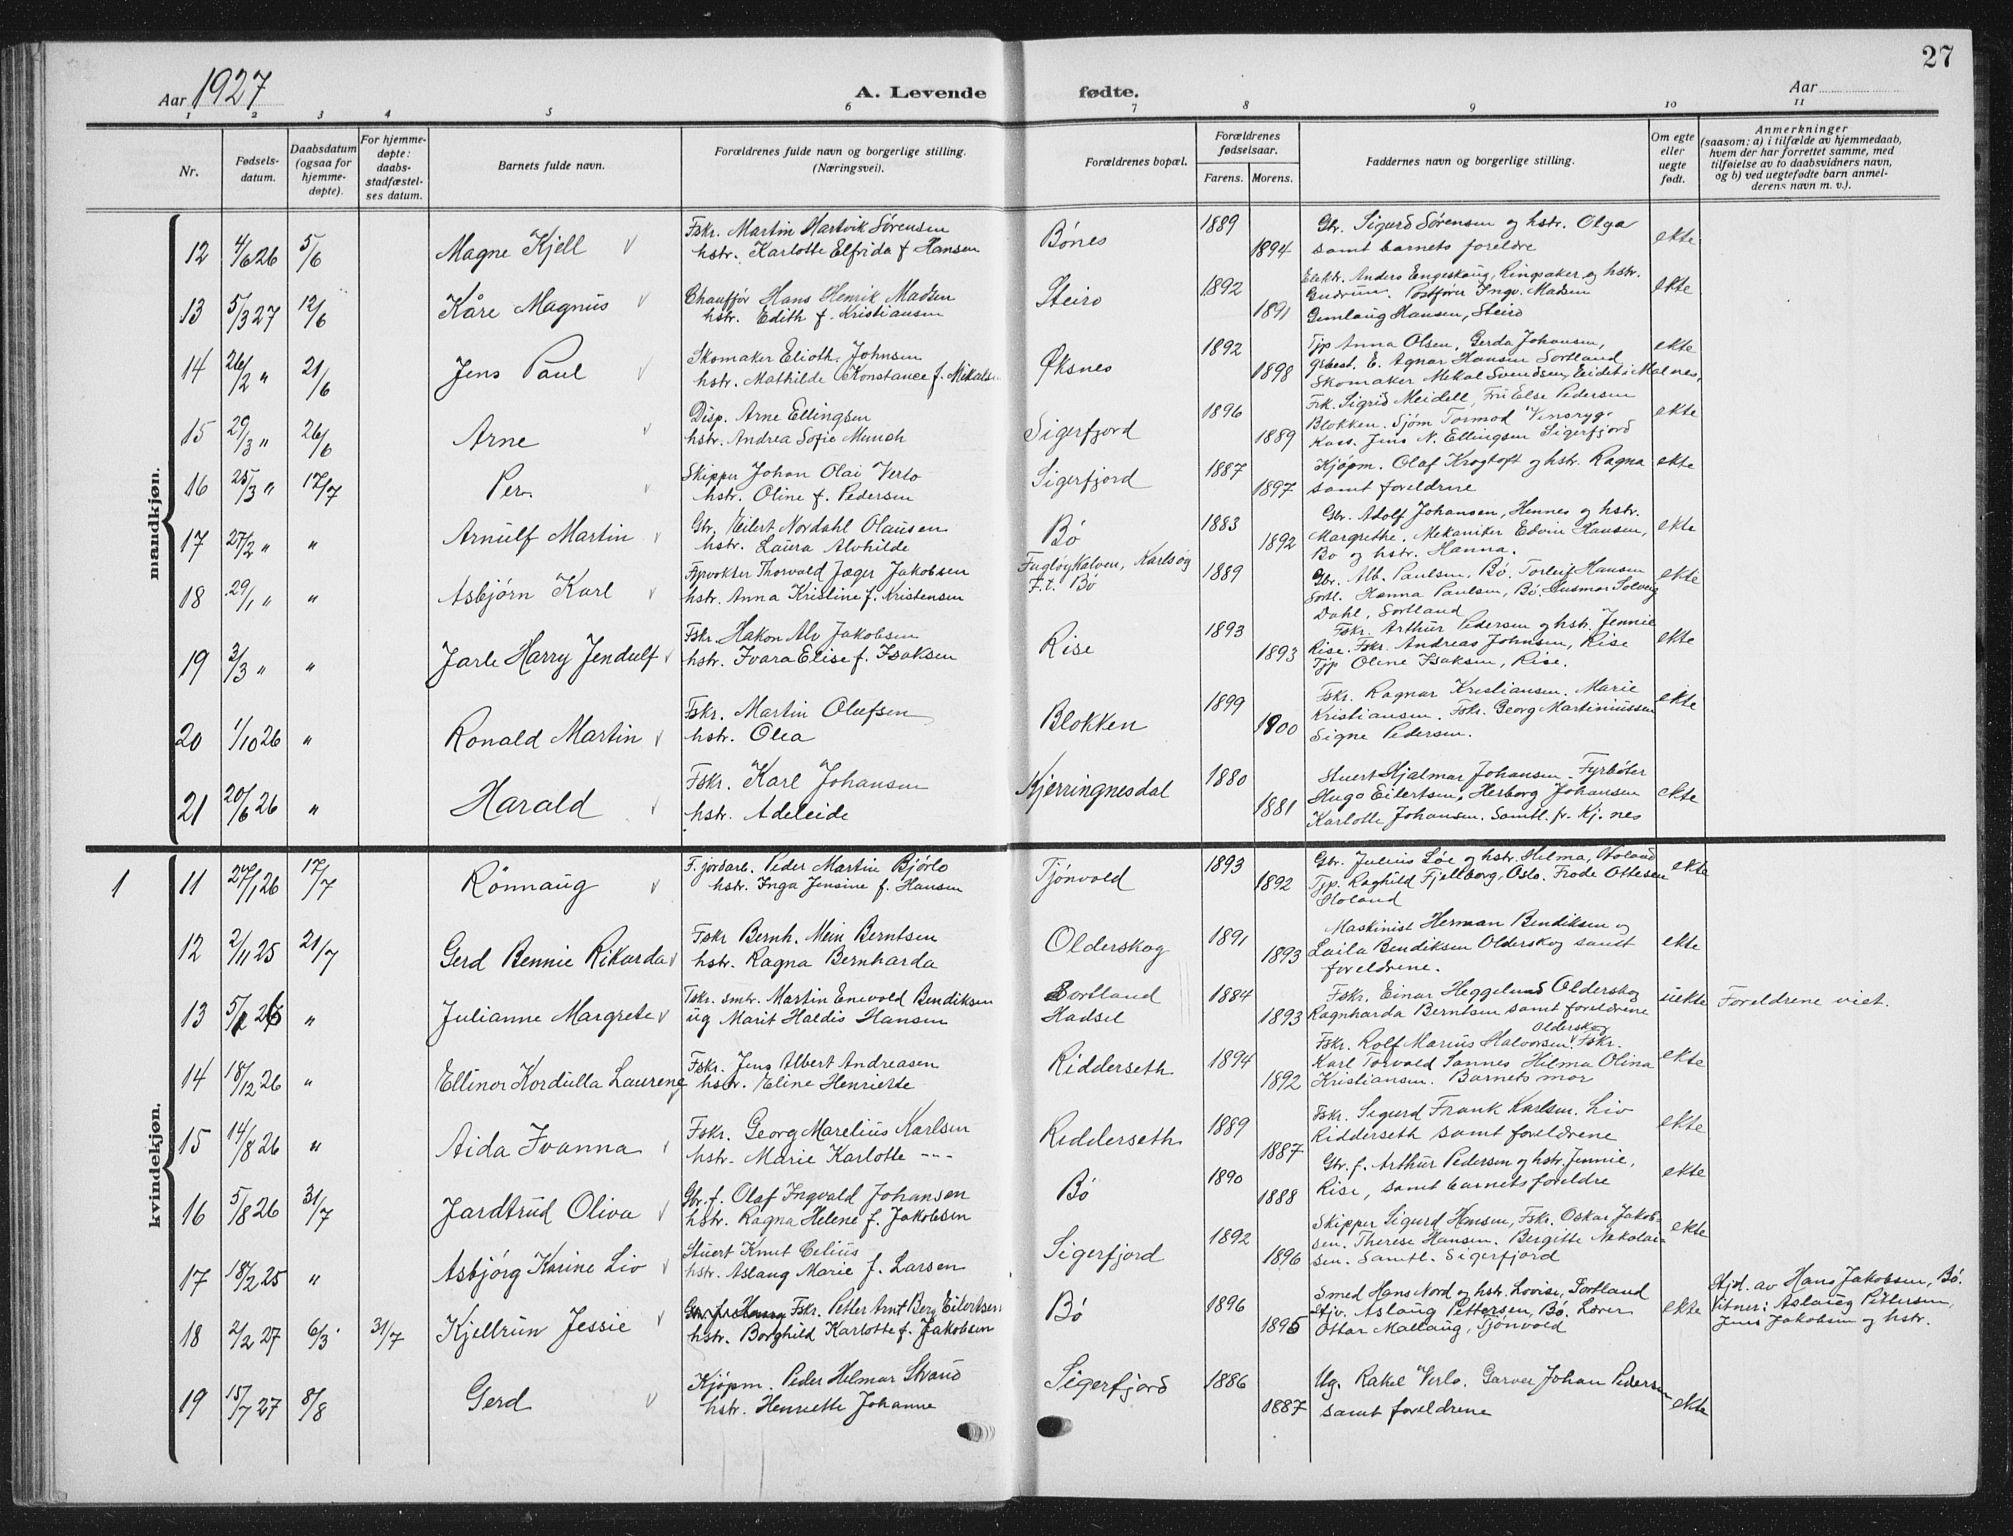 27
Aar 1927
A. Levende fødte.
Aar
1 2 3 4 5 6 7 8 9 10 11
Nr.
Fødsels-
datum.
Daabsdatum
(ogsaa for
hjemme-
døpte).
For hjemme-
døpte:
daabs-
stadfæstel-
ses datum.
Barnets fulde navn.
Forældrenes fulde navn og borgerlige stilling.
(Næringsvei).
Forældrenes bopæl.
Forældrenes
fødselsaar.
Farens. Morens.
Faddernes navn og borgerlige stilling.
Om egte
eller
uegte
født.
Anmerkninger
(saasom: a) i tilfælde av hjemmedaab,
hvem der har forrettet samme, med
tilføielse av to daabsvidners navn,
og b) ved uegtefødte barn anmel-
derens navn m. v.).
mandkjøn.
12 4/6 26 5/6 Magne Kjell v
Fskr. Martin Hartvik Sørensen
hstr. Karlotte Elfrida f. Hansen
Bönes 1889 1894
Gbr. Sigurd Sørensen og hstr. Olga
samt barnets foreldre
ekte
13 5/3 27 12/6 Kåre Magnus v
Chauffør Hans Henrik Madsen
hstr. Edith f. Kristiansen
Steiro 1892 1891
Elektr. Anders Engeskaug, Ringsaker og hstr.
Gudrun. Postfører Ingv. Madsen
Gunlaug Hansen, Steiro
ekte
14 26/2 " 21/6 Jens Paul v
Skomaker Elioth Johnsen
hstr. Mathilde Konstance f. Mikalsen
Øksnes 1892 1898
Tjp Anna Olsen, Gerda Johansen,
E. Agnar Hansen Sortland
Skomaker Mekal Svendsen, Eidet i Malnes,
ekte
15 29/3 " 26/6 Arne v
Disp. Arne Ellingsen
hstr. Andrea Sofie Munch
Sigerfjord 1896 1889
Frk. Sigrid Meidell, Fru Else Pedersen
Blokken. Sjøm Tormod Vinsryg.
Kass. Jens N. Ellingsen Sigerfjord
ekte
16 25/3 " 17/7 Per. v
Skipper Johan Olai Verlo
hstr. Oline f. Pedersen
Sigerfjord 1887 1897
Kjøpm. Olaf Krogtoft og hstr. Ragna
samt foreldrene
ekte
17 27/2 " " Arnulf Martin v
Gbr. Eilert Nordahl Olausen
hstr. Laura Alvhilde
Bö 1883 1892
Gbr. Adolf Johansen, Hennes og hstr.
Margrethe. Mekaniker Edvin Hansen,
Bö og hstr. Hanna.
ekte
18 29/1 " " Asbjørn Karl v
Fyrvokter Thorvald Jæger Jakobsen
hstr. Anna Kristine f. Kristensen
Fugløykalven, Karlsøy
F.t. Bö
1889
Gbr. Alb. Paulsen, Bö. Torleif Hansen
Sortl. Hanna Paulsen, Bö. Husmor Solveig
Dahl, Sortland
ekte
19 3/3 " " Jarle Harry Jendulf v
Fskr. Hakon Alv Jakobsen
hstr. Ivara Elise f. Isaksen
Rise 1893 1893
Fskr. Arthur Pedersen og hstr. Jennie
Rise. Fskr. Andreas Johnsen, Rise
Tjp Oline Isaksen, Rise.
ekte
20 1/10 26 " Ronald Martin v
Fskr. Martin Olufsen
hstr. Olea
Blokken 1899 1900
Fskr. Ragnar Kristiansen. Marie
Kristiansen. Fskr. Georg Martiniussen
Signe Pedersen.
ekte
21 20/6 26 " Harald v
Fskr. Karl Johansen
hstr. Adeleide
Kjerringnesdal 1880 1881
Stuert Hjalmar Johansen. Fyrbøter
Hugo Eilertsen, Herborg Johansen
Karlotte Johansen. Samtl. fr. Kj. nes
ekte
kvindekjøn.
1 11 24/1 26 17/7 Rönnaug v
F. jordarb. Peder Martin Bjørlo
hstr. Inga Jensine f. Hansen
Tjönvold 1893 1892
Gbr. Julius Löe og hstr. Hilma, Holand
Tjp. Raghild Fjellborg, Oslo. Frode Ottesen
Holand
ekte
12 2/11 25 21/7 Gerd Bennie Rikarda v
Fskr Bernh. Mein Berntsen
hstr. Ragna Bernharda
Olderskog 1891 1893
Maskinist Herman Bendiksen og
Laila Bendiksen Olderskog samt
foreldrene.
ekte
13 5/2 26 " Julianne Margrete v
Fskr. smbr. Martin Enevold Bendiksen
ug Marit Haldis Hansen
Sortland
Hadsel
1884 1893
Fskr. Einar Heggelund Olderskog
Ragnharda Berntsen samt foreldrene
uekte Foreldrene viet.
14 18/12 26 " Ellinor Kordulla Laurene
Fskr. Jens Albert Andreasen
hstr. Eline Henriette
Ridderseth 1894 1892
Olderskog
Fskr. Rolf Marius Halvorsen, Fskr.
Karl Torvald Sannes Hilma Olina
Kristiansen. Barnets mor
ekte
15 14/8 26 " Aida Ivanna
Fskr. Georg Marelius Karlsen
hstr. Marie Karlotte ---
Ridderseth 1889 1887
Fskr. Sigurd Frank Karlsen. Liv
Ridderseth samt foreldrene
ekte
16 5/8 26 31/7 Jardtrud Oliva v
Gbr. f. Olaf Ingvald Johansen
hstr. Ragna Helene f. Jakobsen
Bö 1890 1888
Gbr. f. Arthur Pedersen og hstr. Jennie,
Rise, samt barnets foreldre
ekte
17 18/2 25 " Asbjørg Karine Liv v
Stuert Knut Celius
hstr. Aslaug Marie f. Larsen
Sigerfjord 1892 1896
Skipper Sigurd Hansen, Fskr. Oskar Jakob-
sen. Therese Hansen. Bergitte Nikolai-
sen. Samtl. Sigerfjord
ekte
18 2/2 27 6/3 31/7 Kjellrun Jessie v
Fskr. Petter Arnt Berg Eilertsen
hstr. Borghild Karlotte f. Jakobsen
Bö 1896 1895
Smed Hans Nord og hstr. Lovise, Sortland
Aslaug Pettersen, Bö. Lærer
Ottar Mallaug, Tjönvold
ekte
Hjd. av Hans Jakobsen, Bö.
Vitner: Aslaug Pettersen,
Jens Jakobsen og hstr.
19 15/7 27 8/8 Gerd v
Kjøpm. Peder Hilmar Strand
hstr. Henriette Johanne
Sigerfjord 1886 1887
Ug. Rakel Verlo. Garver Johan Pedersen
samt foreldrene
ekte